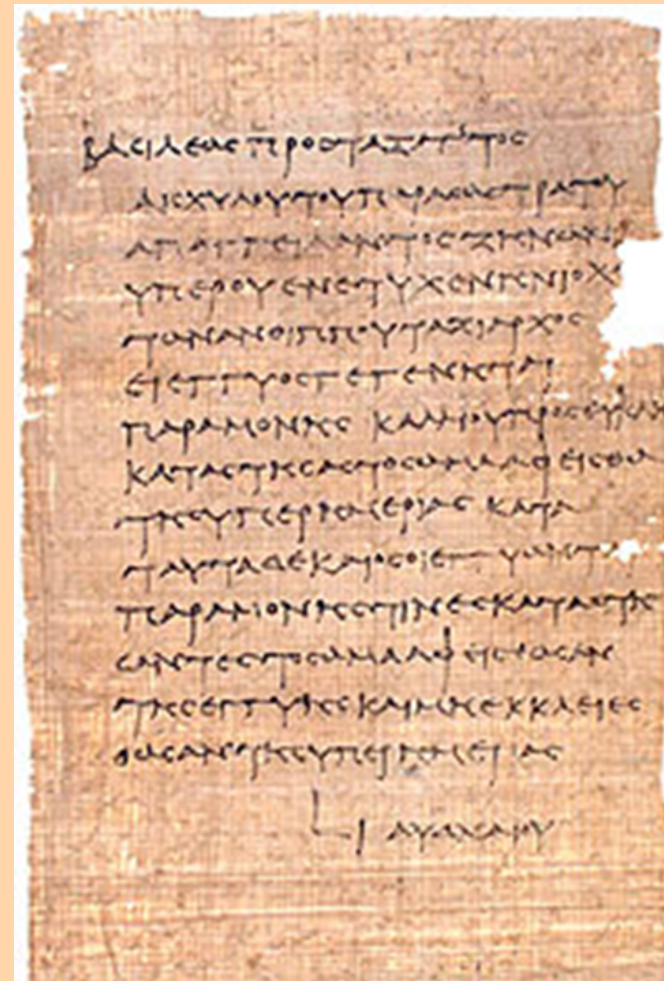 βασιλεως προσταξαντος
αισχυλου του παρα σωστρατου
απαγγειλαντος
υπερ ου ενετυχεν ηνιοχο
των ανθιππου ταξιαρχος
ει εγγυος γεγενηται
παραμονης καλλιου προς
καταστησας το σωμα αφεισθω
της υπερημεριας κατα
ταυτα δε και οσοι
παραμονης τινες καταστη
σαντες το σωμα αφεισθωσαν
της εγγυης και μη εκκλειεσ
θωσαν της υπερημεριας
L ι αυδναιου